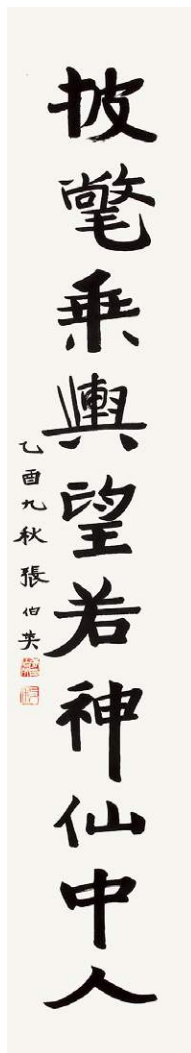 披氅乘輿望若神仙中人
乙酉九秋張伯英